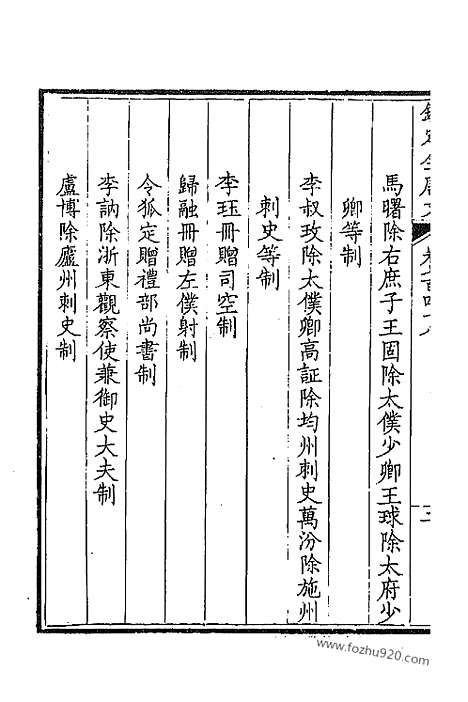 馬曙除右庶子王固除太僕少卿王球除太府少
卿等制
李叔玫除太僕卿高証除均州刺史萬汾除施州
刺史等制
李珏冊贈司空制
歸融冊贈左僕射制
令狐定贈禮部尚書制
李訥除浙東觀察使兼御史大夫制
盧博除廬州刺史制
www.fozhu920.com